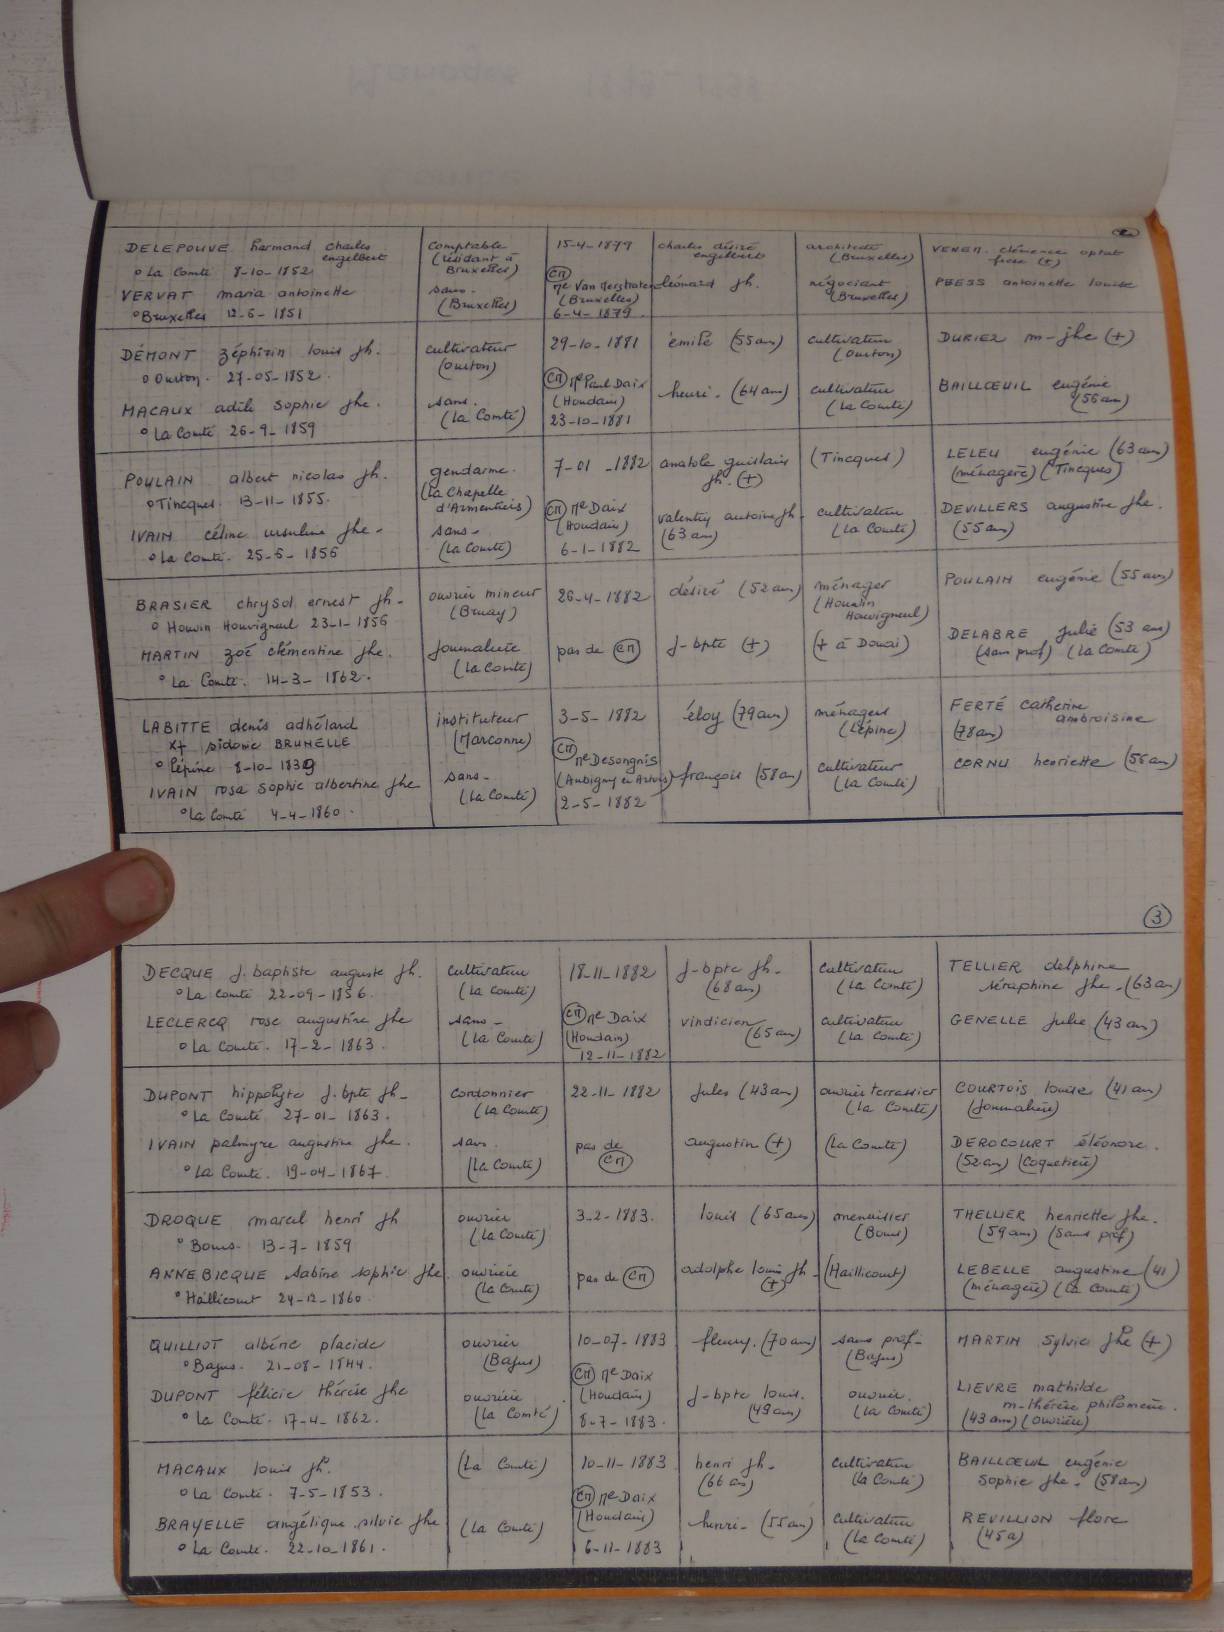 DELEPOUVE harmand charles engelbert
° La Comté 8-10-1852
comptable (résidant à Bruxelles)
15-4-1879
charles désiré engelbert
architecte (Bruxelles)
VENEM. clémence optat
VERVAT maria antoinette
° Bruxelles 12-6-1851
sans. (Bruxelles)
CM Me Van Merstraten (Bruxelles) 6-4-1879
léonard jh.
négociant (Bruxelles)
PEESS antoinette louise
DÉMONT zéphirin louis jh.
° Ourton. 27-05-1852.
cultivateur (Ourton)
29-10-1881
émile (55 ans)
cultivateur (Ourton)
DURIEZ m-jhe (+)
MACAUX adèle sophie jhe.
° La Comté 26-9-1859
sans. (La Comté)
CM Me Paul Daix (Houdain) 23-10-1881
henri. (64 ans)
cultivateur (La Comté)
BAILLŒUIL eugénie (56 ans)
POULAIN albert nicolas jh.
° Tincques. 13-11-1855.
gendarme. (La Chapelle d'Armentières)
7-01-1882
anatole guislain jh. (+)
(Tincques)
LELEU eugénie (63 ans) (ménagère) (Tincques)
IVAIN céline ursuline jhe-
° La Comté. 25-6-1856
sans- (La Comté)
CM Me Daix (Houdain) 6-1-1882
valentin antoine jh- (63 ans)
cultivateur (La Comté)
DEVILLERS augustine jhe. (55 ans)
BRASIER chrysol ernest jh-
° Houvin Houvigneul 23-1-1856
ouvrier mineur (Bruay)
26-4-1882
désiré (52 ans)
ménager (Houvin Houvigneul)
POULAIN eugénie (55 ans)
MARTIN zoé clémentine jhe.
° La Comté. 14-3-1862.
journalière (La Comté)
pas de CM
j-bpte (+)
(+ à Douai)
DELABRE julie (53 ans) (sans prof) (La Comté)
LABITTE denis adhélard
x+ sidonie BRUNELLE
° Lépine 8-10-1839
instituteur (Marconne)
3-5-1882
éloy (79 ans)
ménager (Lépine)
FERTÉ catherine ambroisine (78 ans)
IVAIN rosa sophie albertine jhe
° La Comté 4-4-1860.
sans- (La Comté)
CM Me Desongnis (Aubigny en Artois) 2-5-1882
françois (58 ans)
cultivateur (La Comté)
CORNU henriette (56 ans)
3
DECQUE j. baptiste auguste jh.
° La Comté 22-09-1856.
cultivateur (La Comté)
18-11-1882
j-bpte jh- (68 ans)
cultivateur (La Comté)
TELLIER delphine séraphine jhe-(63 ans)
LECLERCQ rose augustine jhe
° La Comté. 17-2-1863.
sans- (La Comté)
CM Me Daix (Houdain) 12-11-1882
vindicien (65 ans)
cultivateur (La Comté)
GENELLE julie (43 ans)
DUPONT hippolyte j. bpte jh-
° La Comté 27-01-1863.
cordonnier (La Comté)
22-11-1882
jules (43 ans)
ouvrier terrassier (La Comté)
COURTOIS louise (41 ans) (journalière)
IVAIN palmyre augustine jhe.
° La Comté. 19-04-1867.
sans. (La Comté)
pas de CM
augustin (+)
(La Comté)
DEROCOURT éléonore. (52 ans) (coquetière)
DROQUE marcel henri jh
° Bours. 13-7-1859
ouvrier (La Comté)
3-2-1883.
louis (65 ans)
menuisier (Bours)
THELLIER henriette jhe. (59 ans) (sans prof)
ANNEBICQUE sabine sophie jhe.
° Haillicourt 24-12-1860.
ouvrière (La Comté)
pas de CM
adolphe louis jh- (+)
(Haillicourt)
LEBELLE augustine (41) (ménagère) (La Comté)
QUILLIOT albéric placide
° Bajus. 21-08-1844.
ouvrier (Bajus)
10-07-1883
fleury. (70 ans)
sans prof- (Bajus)
MARTIN sylvie jhe (+)
DUPONT félicie thérèse jhe
° La Comté. 17-4-1862.
ouvrière (La Comté)
CM Me Daix (Houdain) 8-7-1883.
j-bpte louis. (49 ans)
ouvrier. (La Comté)
LIEVRE mathilde m-thérèse philomène. (43 ans) (ouvrière)
MACAUX louis jh.
° La Comté. 7-5-1853.
(La Comté)
10-11-1883
henri jh- (66 ans)
cultivateur (La Comté)
BAILLŒUIL eugénie sophie jhe. (58 ans)
BRAYELLE angélique silvie jhe
° La Comté. 22-10-1861.
(La Comté)
CM Me Daix (Houdain) 6-11-1883
henri- (55 ans)
cultivateur (La Comté)
REVILLION flore (45a)